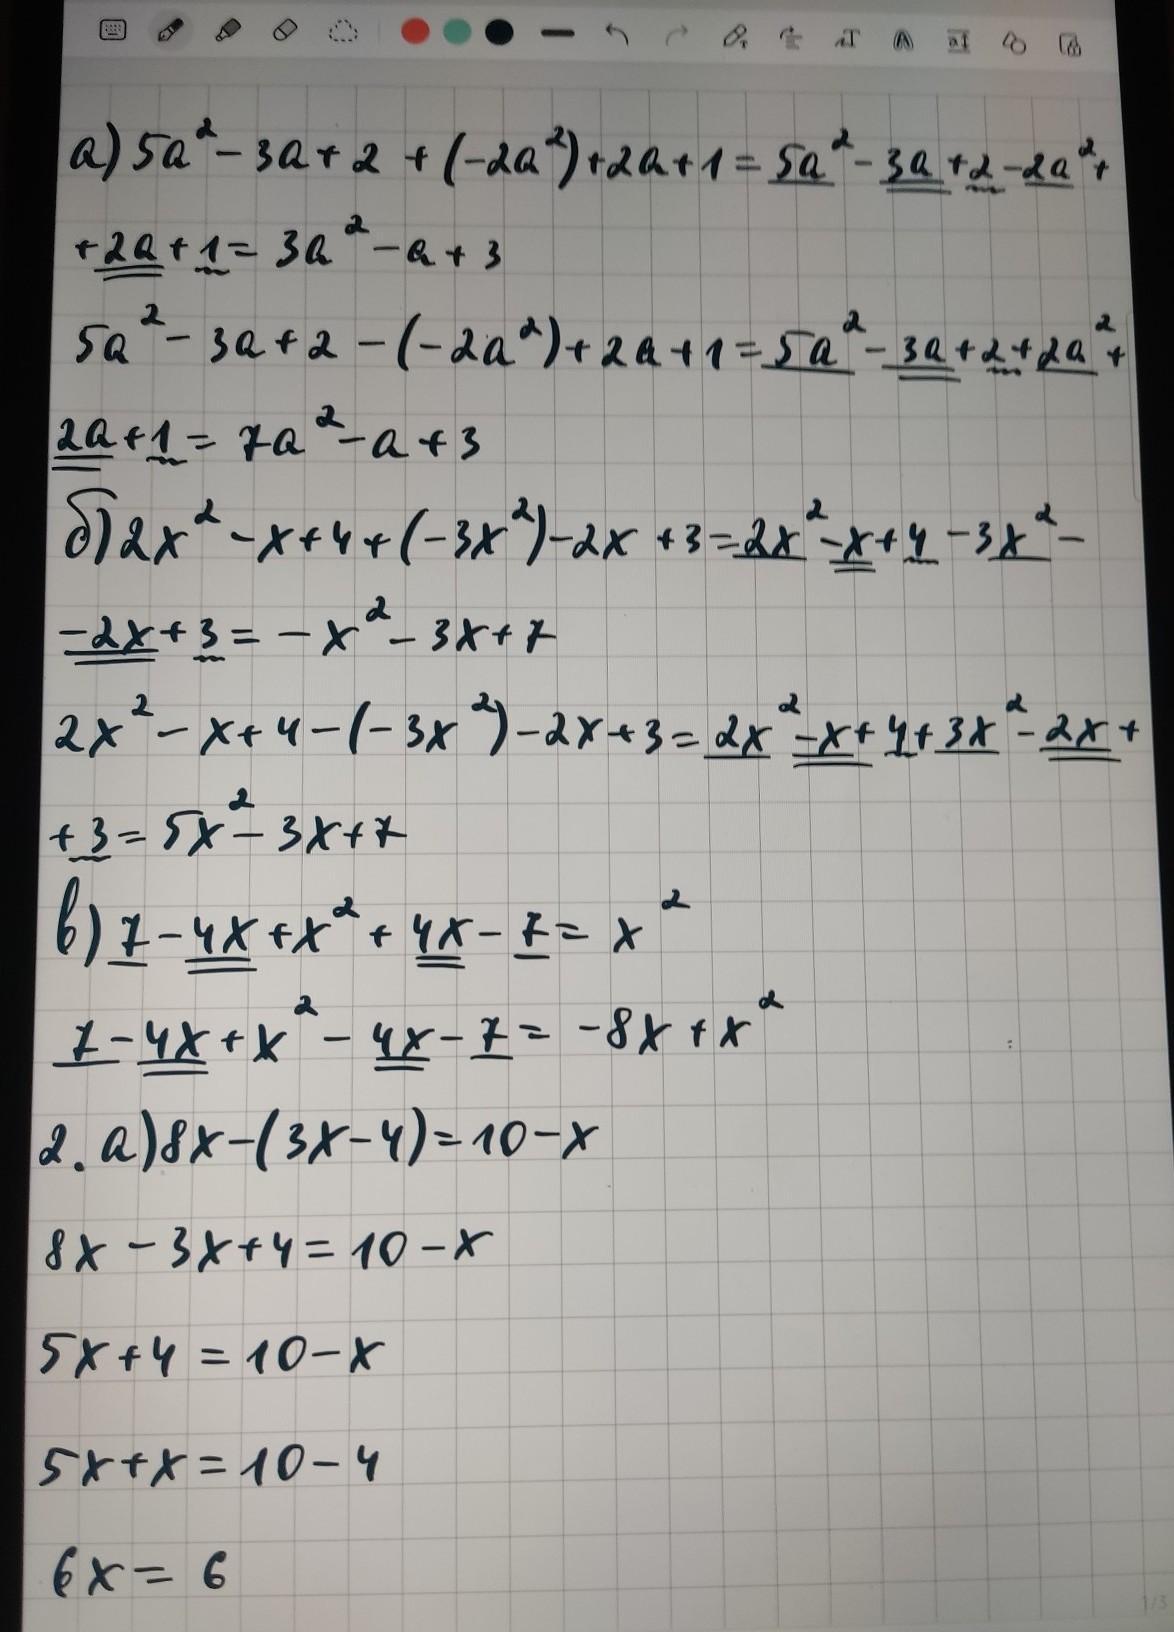 а) 5a² - 3a + 2 + (-2a²) + 2a + 1 = 5a² - 3a + 2 - 2a² +
+ 2a + 1 = 3a² - a + 3
5a² - 3a + 2 - (-2a²) + 2a + 1 = 5a² - 3a + 2 + 2a² +
2a + 1 = 7a² - a + 3
б) 2x² - x + 4 + (-3x²) - 2x + 3 = 2x² - x + 4 - 3x² -
- 2x + 3 = - x² - 3x + 7
2x² - x + 4 - (-3x²) - 2x + 3 = 2x² - x + 4 + 3x² - 2x +
+ 3 = 5x² - 3x + 7
в) 7 - 4x + x² + 4x - 7 = x²
7 - 4x + x² - 4x - 7 = -8x + x²
2. а) 8x - (3x - 4) = 10 - x
8x - 3x + 4 = 10 - x
5x + 4 = 10 - x
5x + x = 10 - 4
6x = 6
1/3